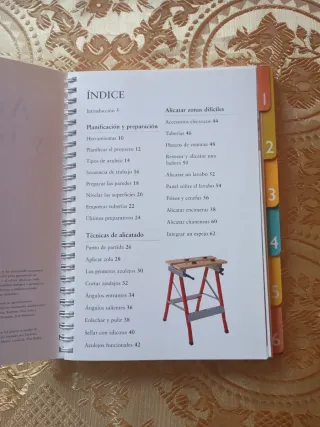 ÍNDICE
Introducción
Planificación y preparación
Herramientas 10
Planificar el proyecto 12
Tipos de azulejo 14
Secuencia de trabajo 16
Preparar las paredes 18
Nivelar las superficies 20
Empotrar tuberías 22
Últimos preparativos 24
Técnicas de alicatado
Punto de partida 26
Aplicar cola 28
Los primeros azulejos 30
Cortar azulejos 32
Ángulos entrantes 34
Ángulos salientes 36
Enlechar y pulir 38
Sellar con silicona 40
Azulejos funcionales 42
Alicatar zonas difíciles
Accesorios eléctricos 44
Tuberías 46
Huecos de ventana 48
Revestir y alicatar una
bañera 50
Alicatar un lavabo 52
Panel sobre el lavabo 54
Frisos y cenefas 56
Alicatar encimeras 58
Alicatar chimeneas 60
Integrar un espejo 62
1
2
3
4
5
6